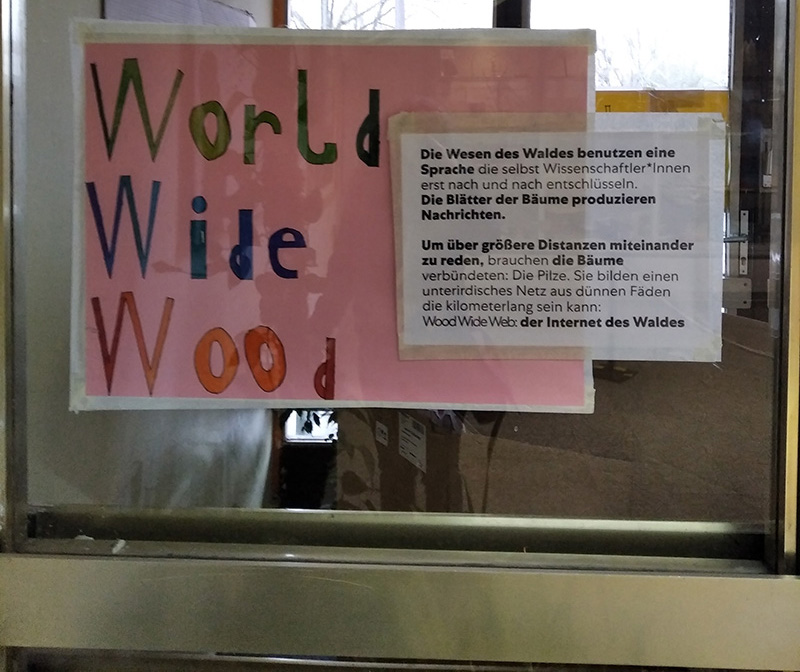 World
Wide
Wood
Die Wesen des Waldes benutzen eine
Sprache die selbst Wissenschaftler*Innen
erst nach und nach entschlüsseln.
Die Blätter der Bäume produzieren
Nachrichten.
Um über größere Distanzen miteinander
zu reden, brauchen die Bäume
verbündeten: Die Pilze. Sie bilden einen
unterirdisches Netz aus dünnen Fäden
die kilometerlang sein kann:
Wood Wide Web: der Internet des Waldes